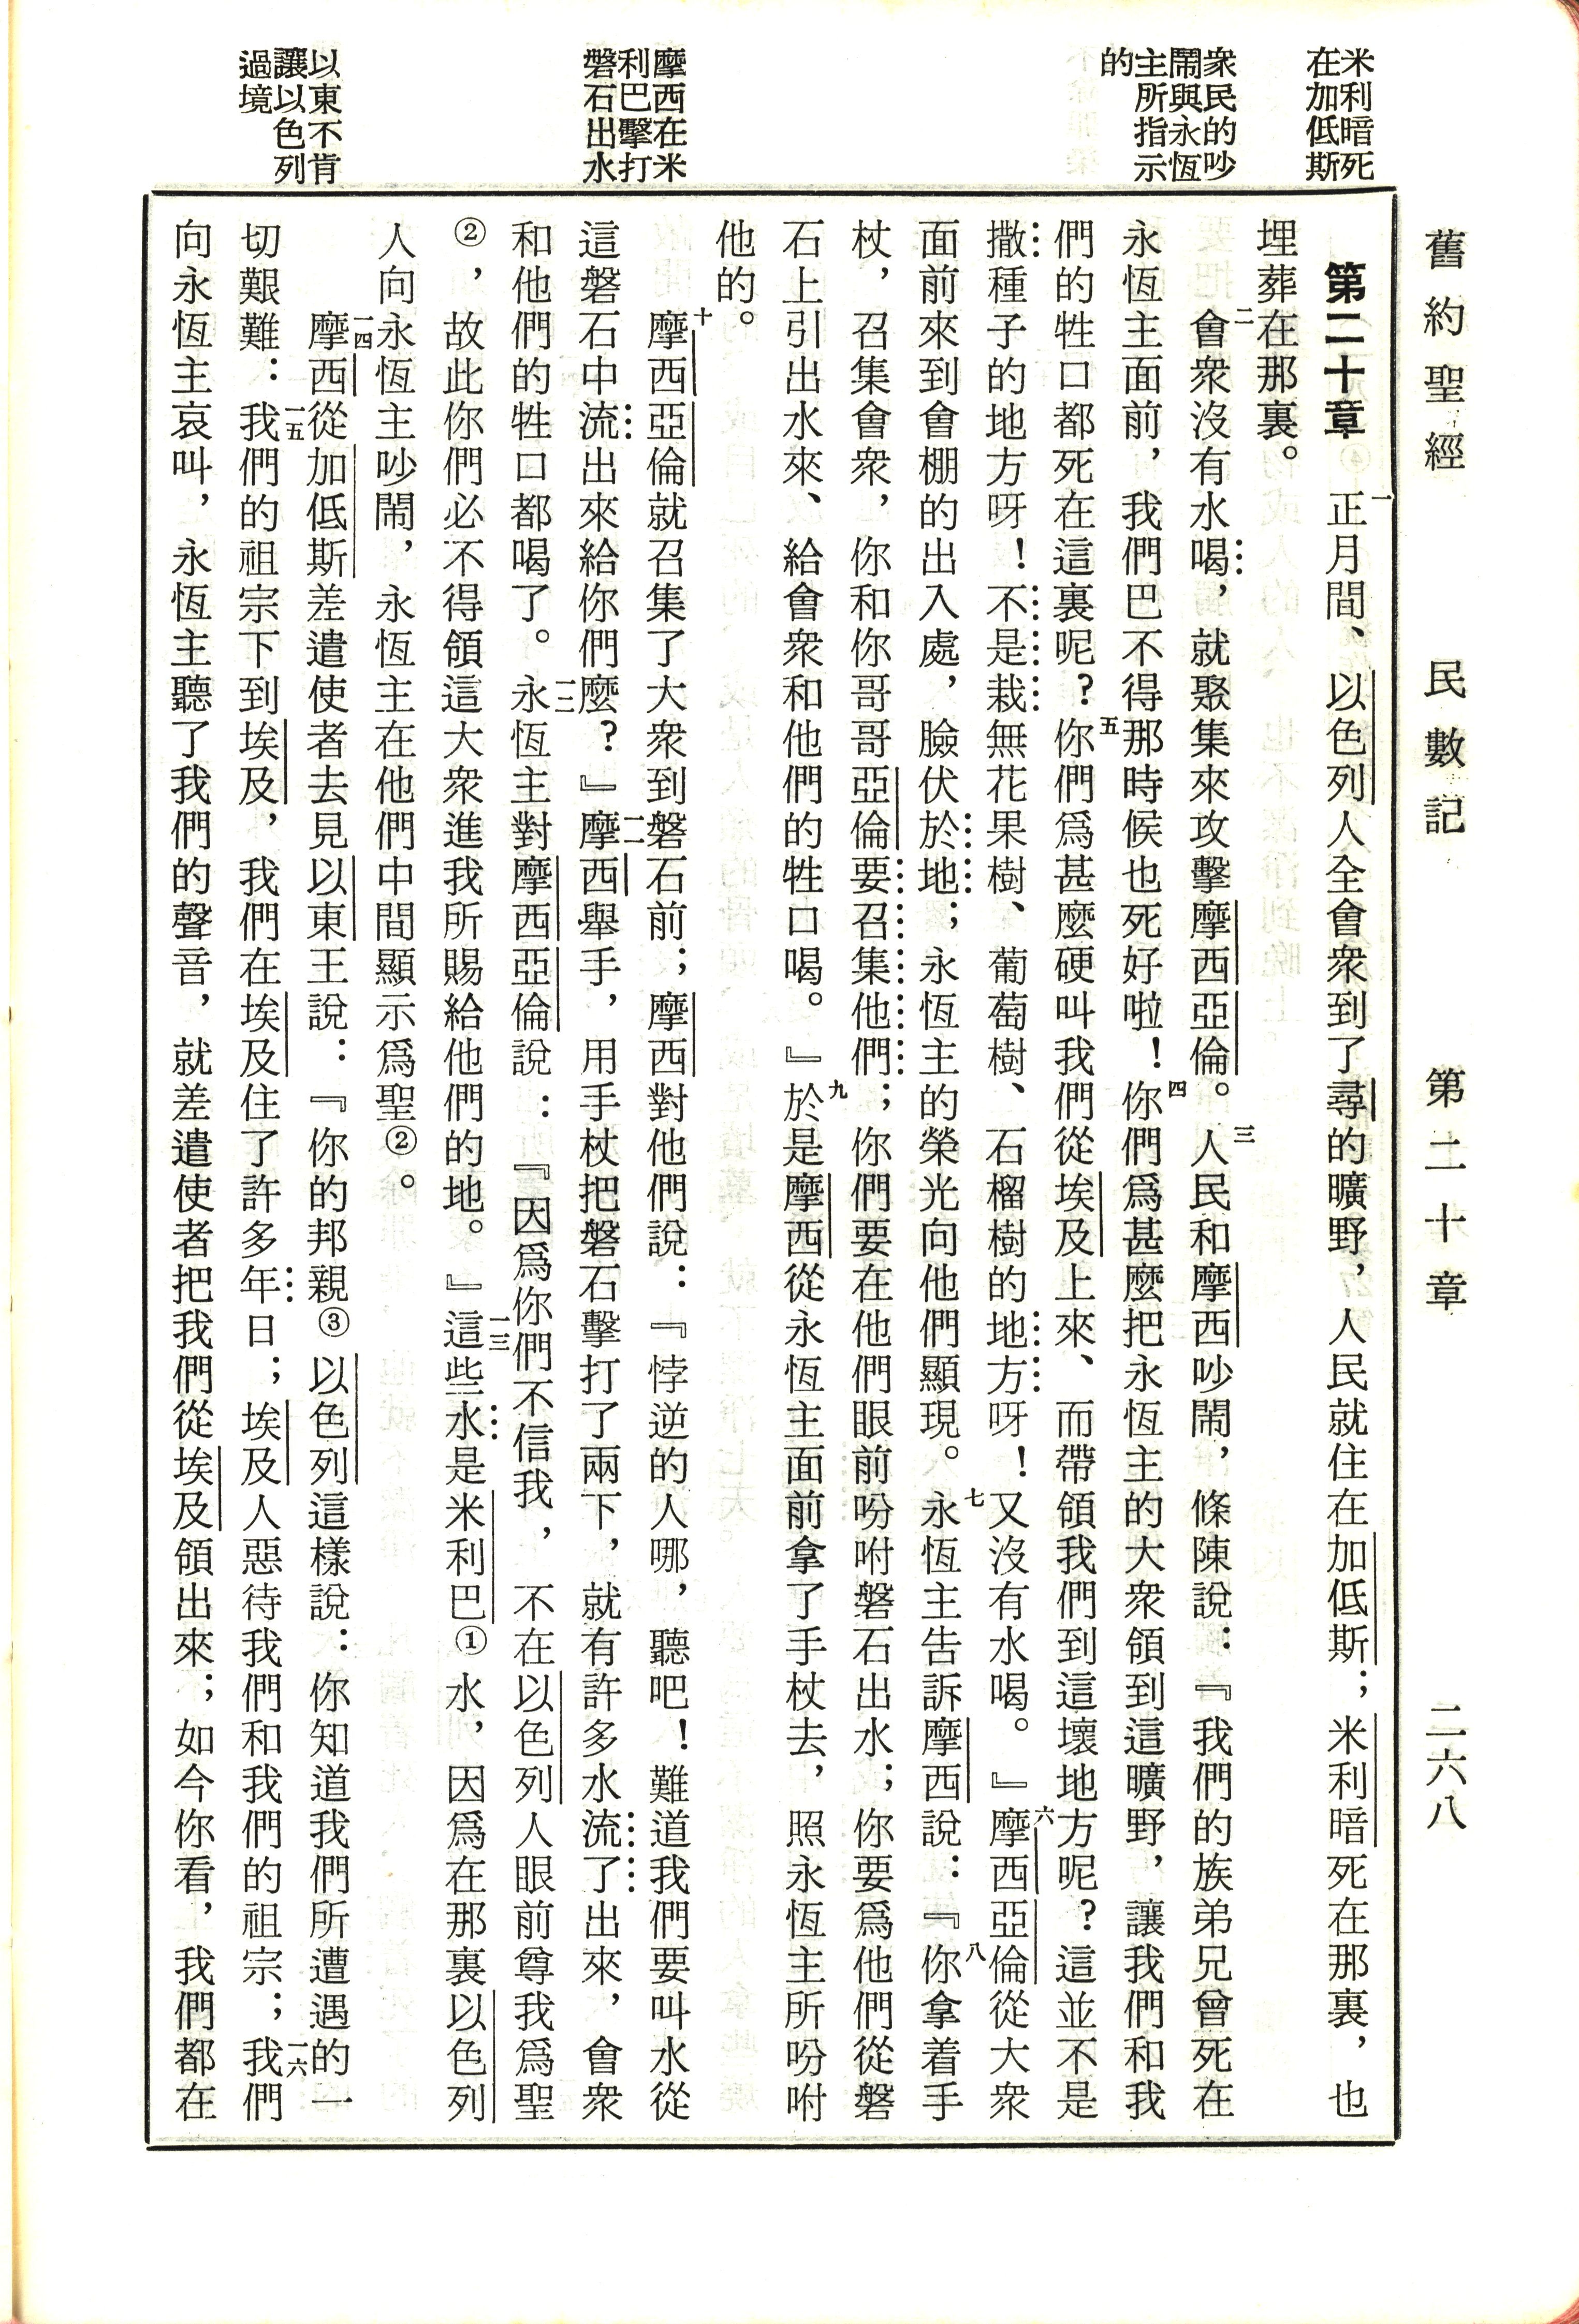 舊約聖經　民數記　第二十章　二六八
米利暗死
在加低斯
衆民的吵
鬧與永恆
主所指示
的
摩西在米
利巴擊打
磐石出水
以東不肯
讓以色列
過境
第二十章　一正月間、以色列人全會衆到了尋的曠野，人民就住在加低斯；米利暗死在那裏，也
埋葬在那裏。
二會衆沒有水喝，就聚集來攻擊摩西亞倫。三人民和摩西吵鬧，條陳說：『我們的族弟兄曾死在
永恆主面前，我們巴不得那時候也死好啦！四你們爲甚麼把永恆主的大衆領到這曠野，讓我們和我
們的牲口都死在這裏呢？五你們爲甚麼硬叫我們從埃及上來、而帶領我們到這壞地方呢？這並不是
撒種子的地方呀！不是栽無花果樹、葡萄樹、石榴樹的地方呀！又沒有水喝。』六摩西亞倫從大衆
面前來到會棚的出入處，臉伏於地；永恆主的榮光向他們顯現。七永恆主告訴摩西說：『八你拿着手
杖，召集會衆，你和你哥哥亞倫要召集他們；你們要在他們眼前吩咐磐石出水；你要爲他們從磐
石上引出水來、給會衆和他們的牲口喝。』九於是摩西從永恆主面前拿了手杖去，照永恆主所吩咐
他的。
十摩西亞倫就召集了大衆到磐石前；摩西對他們說：『悖逆的人哪，聽吧！難道我們要叫水從
這磐石中流出來給你們麼？』一一摩西舉手，用手杖把磐石擊打了兩下，就有許多水流了出來，會衆
和他們的牲口都喝了。一二永恆主對摩西亞倫說：『因爲你們不信我，不在以色列人眼前尊我爲聖
②，故此你們必不得領這大衆進我所賜給他們的地。』一三這些水是米利巴①水，因爲在那裏以色列
人向永恆主吵鬧，永恆主在他們中間顯示爲聖②。
一四摩西從加低斯差遣使者去見以東王說：『你的邦親③以色列這樣說：你知道我們所遭遇的一
切艱難：一五我們的祖宗下到埃及，我們在埃及住了許多年日；埃及人惡待我們和我們的祖宗；一六我們
向永恆主哀叫，永恆主聽了我們的聲音，就差遣使者把我們從埃及領出來；如今你看，我們都在